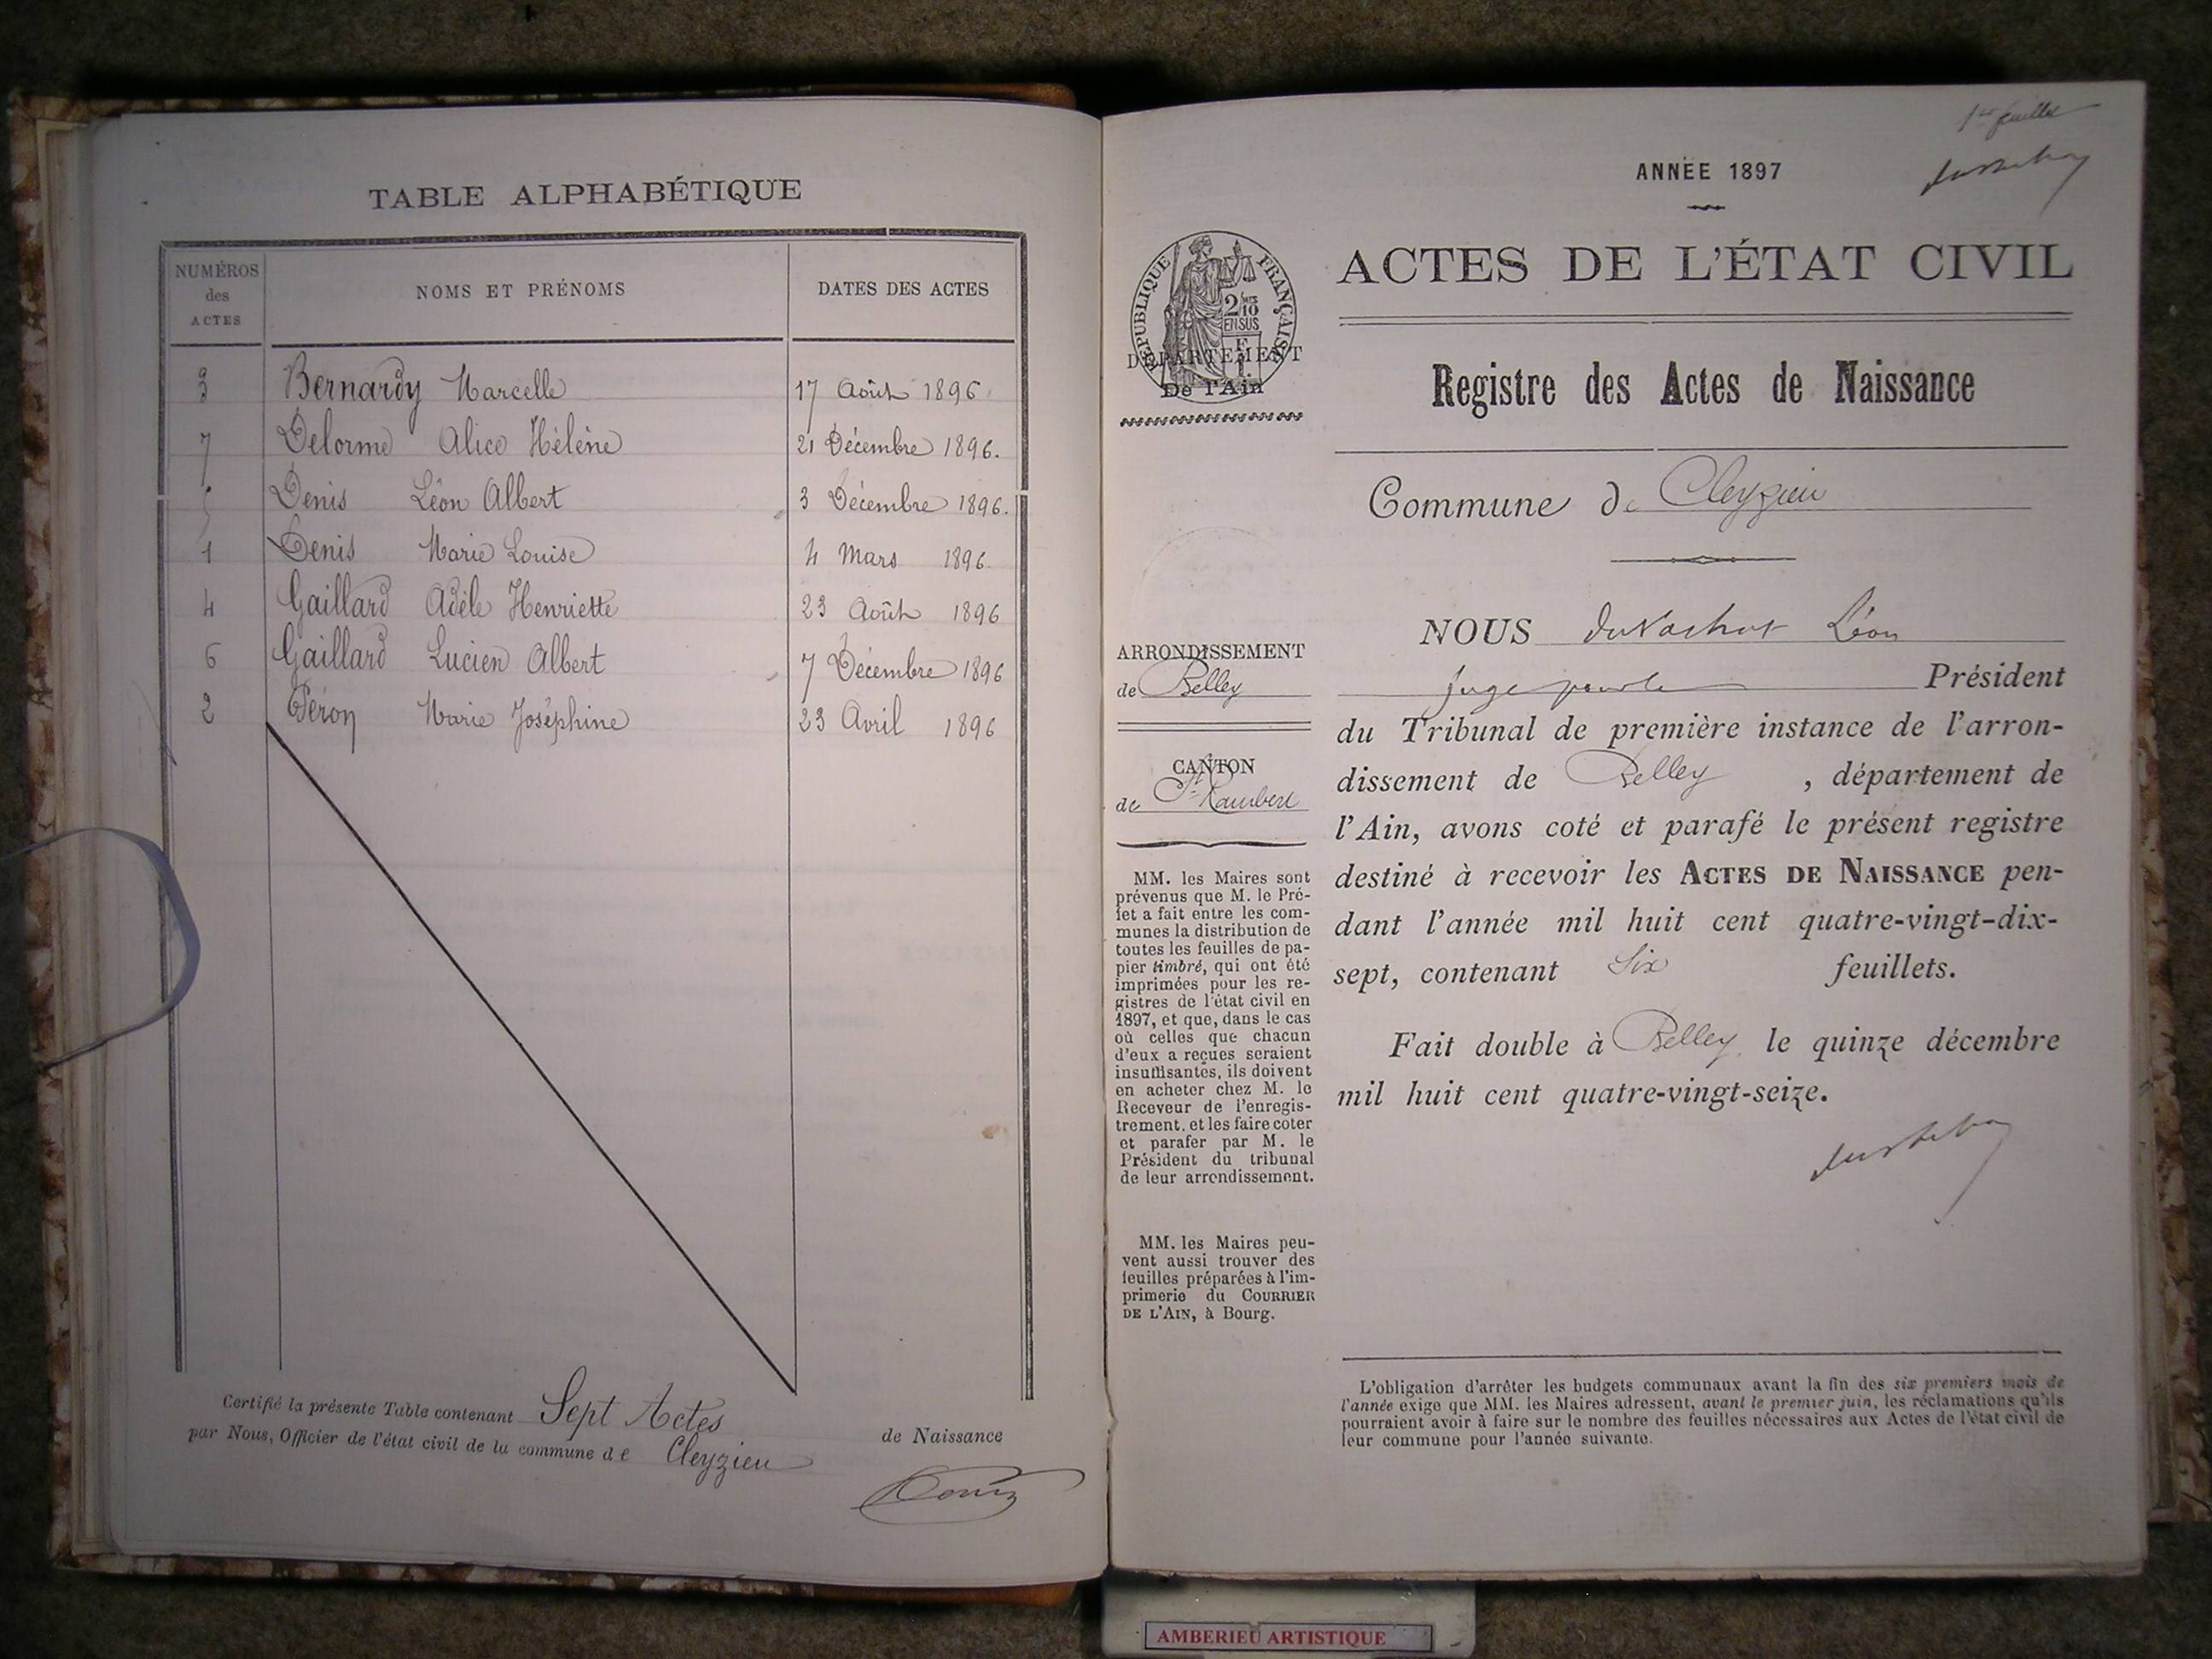 TABLE ALPHABÉTIQUE
NUMÉROS
des
ACTES
NOMS ET PRÉNOMS
DATES DES ACTES
3 Bernardy Marcelle 17 Août 1896
7 Delorme Alice Hélène 21 Décembre 1896.
5 Denis Léon Albert 3 Décembre 1896.
1 Denis Marie Louise 4 Mars 1896.
4 Gaillard Adèle Henriette 23 Août 1896
6 Gaillard Lucien Albert 7 Décembre 1896
2 Péron Marie Joséphine 23 Avril 1896
Certifié la présente Table contenant Sept Actes de Naissance
par Nous, Officier de l'état civil de la commune de Cleyzieu
1er feuillet
ANNÉE 1897
RÉPUBLIQUE FRANÇAISE
2/10
EN SUS
DÉPARTEMENT
De l'Ain
ACTES DE L'ÉTAT CIVIL
Registre des Actes de Naissance
Commune de Cleyzieu
ARRONDISSEMENT
de Belley
CANTON
de St Rambert
MM. les Maires sont
prévenus que M. le Pré-
fet a fait entre les com-
munes la distribution de
toutes les feuilles de pa-
pier timbré, qui ont été
imprimées pour les re-
gistres de l'état civil en
1897, et que, dans le cas
où celles que chacun
d'eux a reçues seraient
insuffisantes, ils doivent
en acheter chez M. le
Receveur de l'enregis-
trement, et les faire coter
et parafer par M. le
Président du tribunal
de leur arrondissement.
MM. les Maires peu-
vent aussi trouver des
feuilles préparées à l'im-
primerie du COURRIER
DE L'AIN, à Bourg.
NOUS Léon
juge pour le Président
du Tribunal de première instance de l'arron-
dissement de Belley, département de
l'Ain, avons coté et parafé le présent registre
destiné à recevoir les ACTES DE NAISSANCE pen-
dant l'année mil huit cent quatre-vingt-dix-
sept, contenant Six feuillets.
Fait double à Belley, le quinze décembre
mil huit cent quatre-vingt-seize.
L'obligation d'arrêter les budgets communaux avant la fin des six premiers mois de
l'année exige que MM. les Maires adressent, avant le premier juin, les réclamations qu'ils
pourraient avoir à faire sur le nombre des feuilles nécessaires aux Actes de l'état civil de
leur commune pour l'année suivante.
AMBERIEU ARTISTIQUE